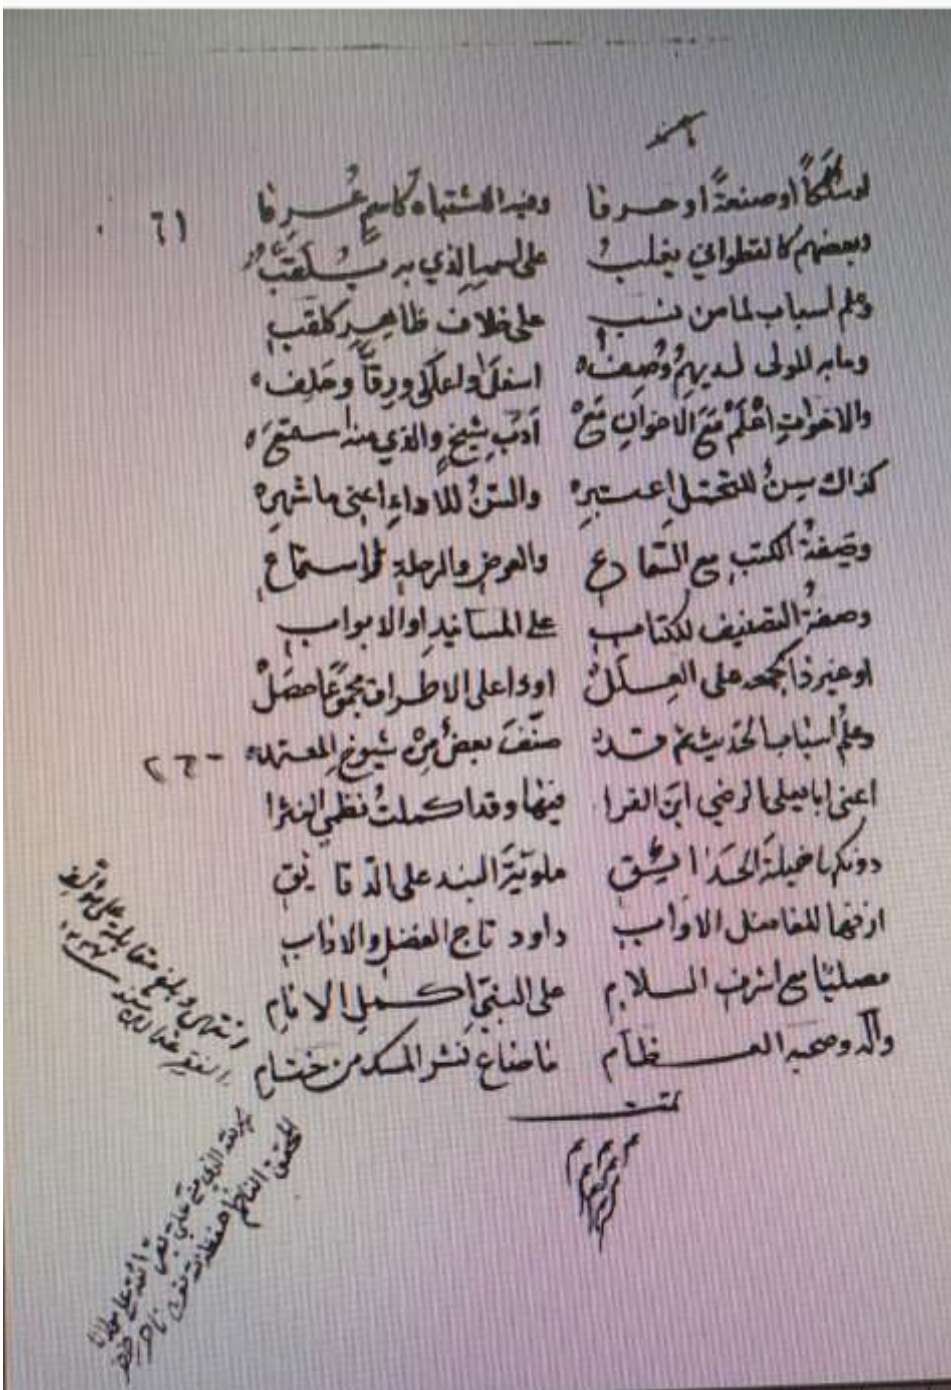 او سككاً او صنعةً او حرفا وفيه الاشتباه كاسمٍ عُرِفا
٦١
وبعضهم كالقطواني يغلبُ على لسميا لذي به يُلَقَّبُ
وعلم اسباب لما من نسب على خلاف ظاهرٍ كلقب
وما به المولى لديهم وُصِف اسفلَ او اعلى ورِقّاً وحَلِف
والاخواتِ اعْلَمْ مَعَ الاخوانِ مَعْ أدبِ شيخٍ والذي منه استمع
كذاك سِنُّ للتحمّل اعتبره والسنُّ للأداءِ اعني ما شهره
وصفةُ الكتب مع السماع والعرض والرحلة للاستماع
وصفةُ التصنيف للكتاب على المسانيدِ او الابواب
او غير ذا كجمعه على العلل او ذا على الاطراف مجموعًا حصل
وعلمُ اسباب الحديث ثم قد صنّفَ بعضٌ مِنْ شيوخِ المعتمد
٢٦٠
اعني ابا يعلى الرضي ابن الفرا فيها وقد اكملتُ نظمي النثرا
دونكها خميلةَ الحدائق ملويّةَ البند على الدقايق
ازفها للفاضل الاواب داود تاج الفضل والاداب
مصليًا مع اشرف السلام على النبيّ اكمل الانام
وآله وصحبه العظام ما ضاع نشر المسك من ختام
تمت
م م م
انتهى وبلغ مقابلة على مؤلفه
الفقير عثمان بن سند